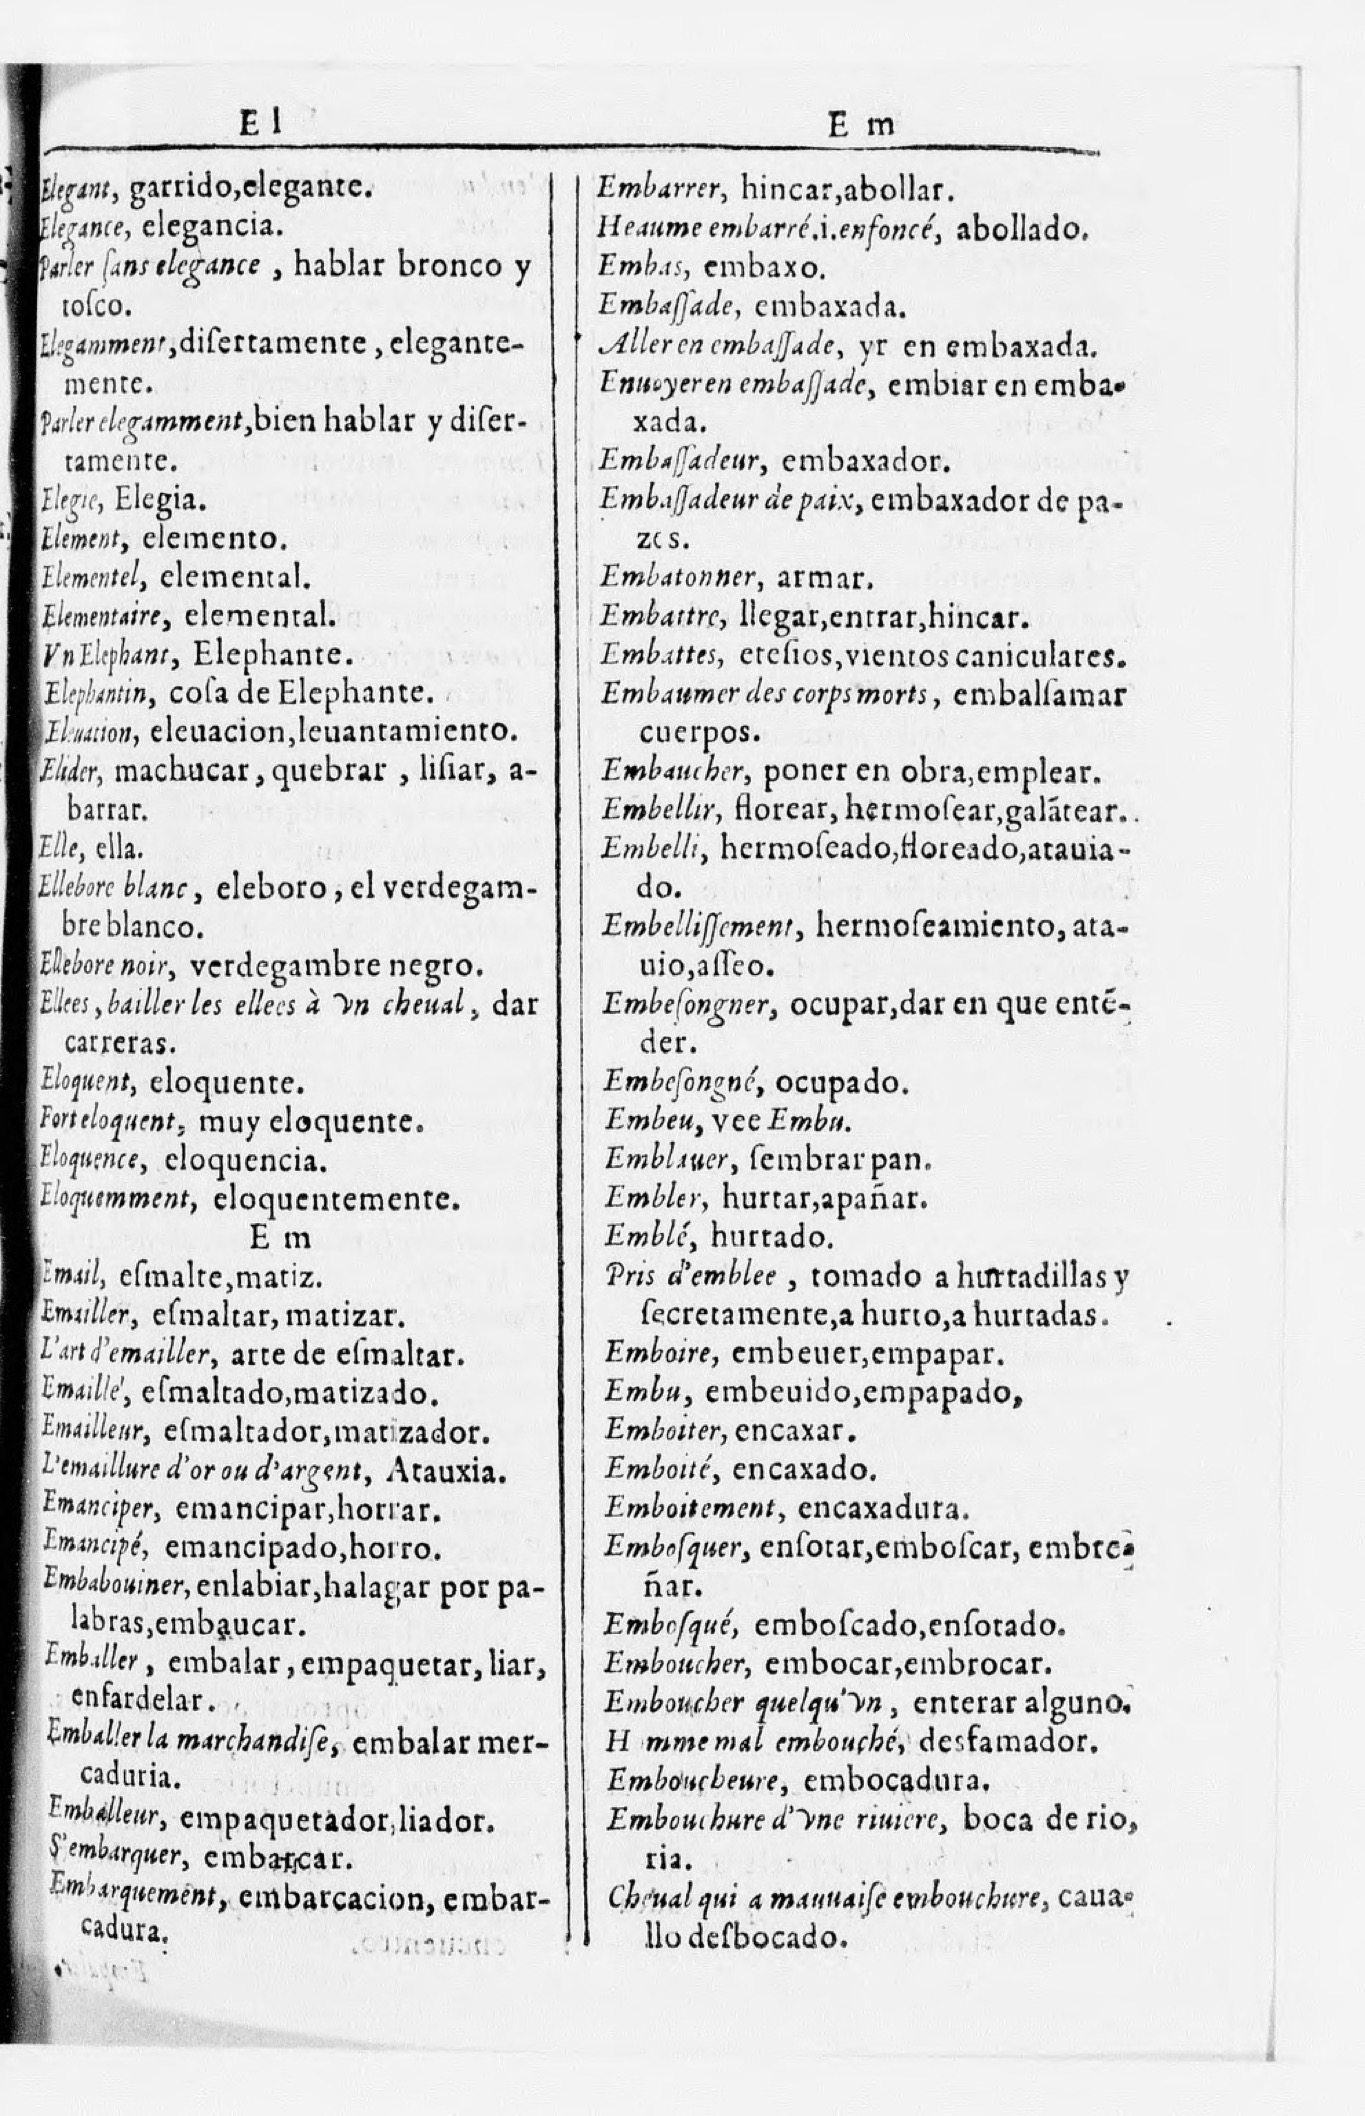 E l
Elegant, garrido,elegante.
Elegance, elegancia.
Parler ſans elegance , hablar bronco y
toſco.
Elegamment,diſertamente , elegante-
mente.
Parler elegamment,bien hablar y diſer-
tamente.
Elegie, Elegia.
Element, elemento.
Elementel, elemental.
Elementaire, elemental.
Vn Elephant, Elephante.
Elephantin, coſa de Elephante.
Eleuation, eleuacion,leuantamiento.
Elider, machucar , quebrar , liſiar, a-
barrar.
Elle, ella.
Ellebore blanc , eleboro , el verdegam-
bre blanco.
Ellebore noir, verdegambre negro.
Ellees , bailler les ellees à vn cheual , dar
carreras.
Eloquent, eloquente.
Fort eloquent, muy eloquente.
Eloquence, eloquencia.
Eloquemment, eloquentemente.
E m
Email, eſmalte,matiz.
Emailler, eſmaltar, matizar.
L'art d'emailler, arte de eſmaltar.
Emaillé, eſmaltado,matizado.
Emailleur, eſmaltador,matizador.
L'emaillure d'or ou d'argent, Atauxia.
Emanciper, emancipar,horrar.
Emancipé, emancipado,horro.
Embabouiner, enlabiar,halagar por pa-
labras,embaucar.
Emballer , embalar , empaquetar, liar,
enfardelar.
Emballer la marchandiſe, embalar mer-
caduria.
Emballeur, empaquetador,liador.
S'embarquer, embarcar.
Embarquement, embarcacion, embar-
cadura.
E m
Embarrer, hincar,abollar.
Heaume embarré.i.enfoncé, abollado.
Embas, embaxo.
Embaſſade, embaxada.
Aller en embaſſade, yr en embaxada.
Enuoyer en embaſſade, embiar en emba-
xada.
Embaſſadeur, embaxador.
Embaſſadeur de paix, embaxador de pa-
zes.
Embatonner, armar.
Embattre, llegar,entrar,hincar.
Embattes, eteſios,vientos caniculares.
Embaumer des corps morts , embalſamar
cuerpos.
Embaucher, poner en obra,emplear.
Embellir, florear, hermoſear,galãtear.
Embelli, hermoſeado,floreado,atauia-
do.
Embelliſſement, hermoſeamiento, ata-
uio,aſſeo.
Embeſongner, ocupar,dar en que entẽ-
der.
Embeſongné, ocupado.
Embeu, vee Embu.
Emblauer, ſembrar pan.
Embler, hurtar,apañar.
Emblé, hurtado.
Pris d'emblee , tomado a hurtadillas y
ſecretamente,a hurto,a hurtadas.
Emboire, embeuer,empapar.
Embu, embeuido,empapado,
Emboiter, encaxar.
Emboité, encaxado.
Emboitement, encaxadura.
Emboſquer, enſotar,emboſcar, embre-
ñar.
Emboſqué, emboſcado,enſotado.
Emboucher, embocar,embrocar.
Emboucher quelqu'vn , enterar alguno.
H mme mal embouché, desfamador.
Emboucheure, embocadura.
Embouchure d'vne riuiere, boca de rio,
ria.
Cheual qui a mauuaiſe embouchure, caua-
llo deſbocado.